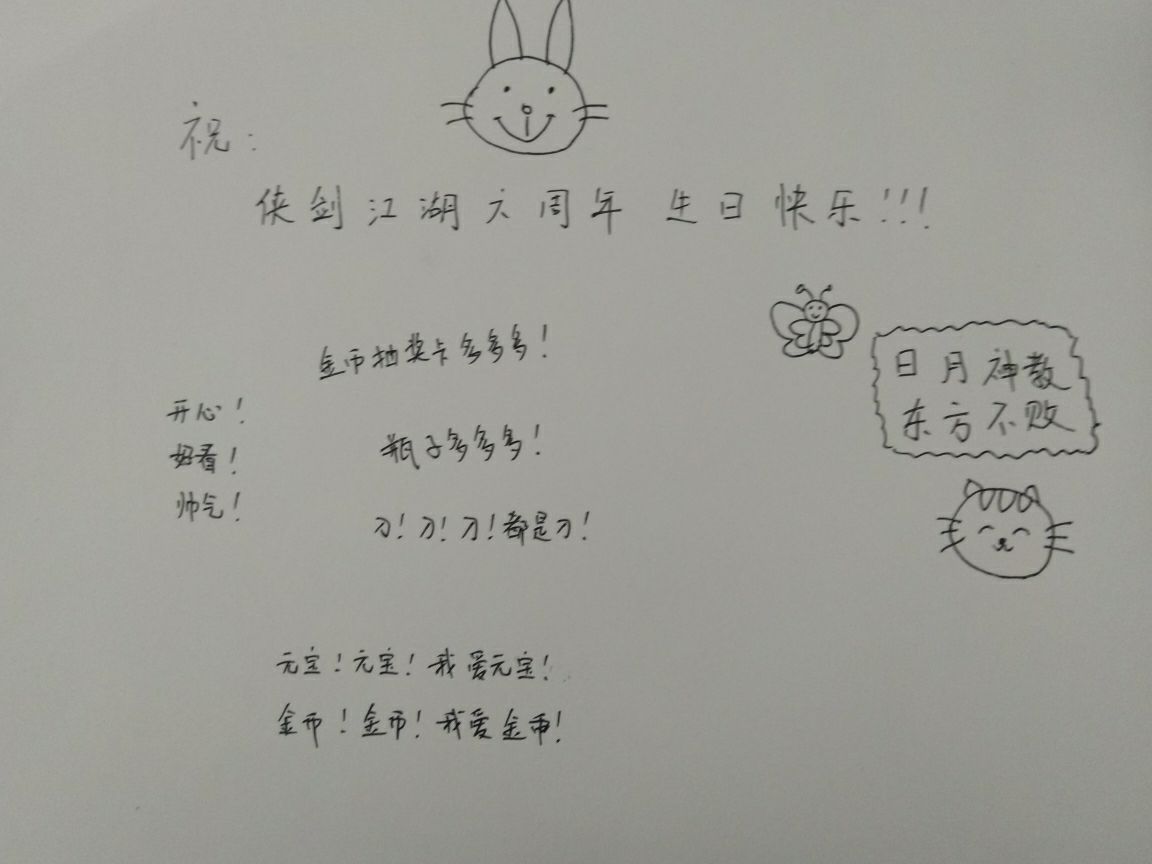 祝：
侠剑江湖六周年 生日快乐!!!
金币抽奖卡多多多!
日月神教
东方不败
开心!
好看!
帅气!
瓶子多多多!
刀! 刀! 刀! 都是刀!
元宝! 元宝! 我爱元宝!
金币! 金币! 我爱金币!